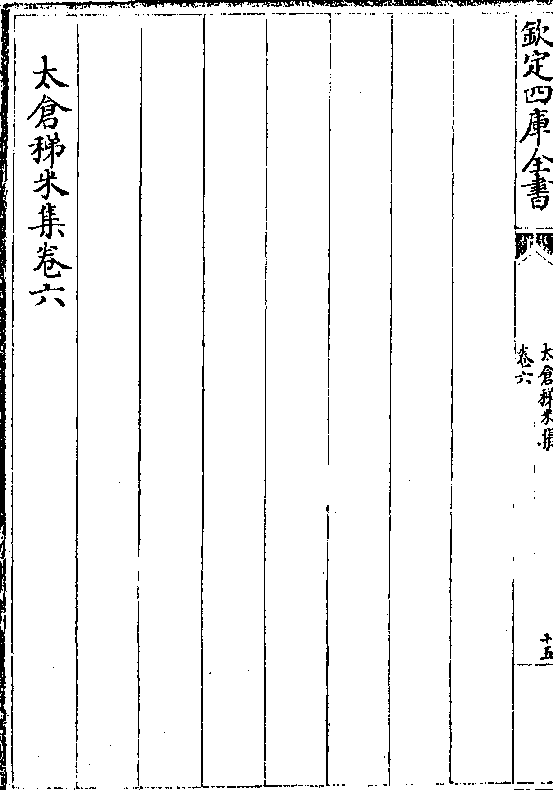 欽定四庫全書
太倉稊米集
卷六
十五
太倉稊米集卷六